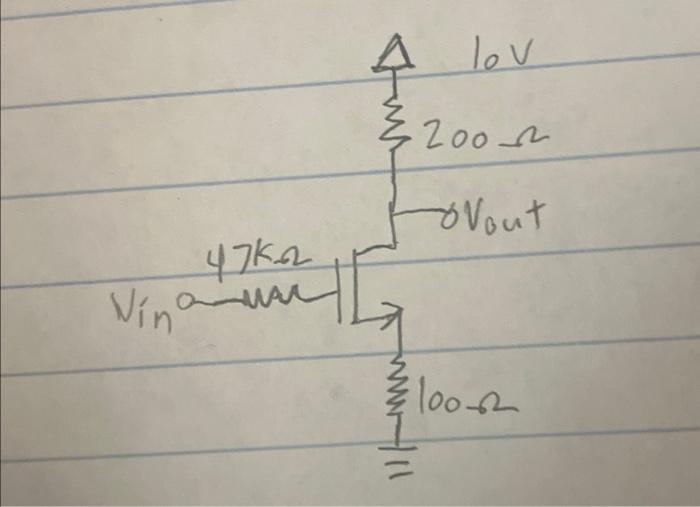 10V
200Ω
Vout
47KΩ
Vin
100Ω